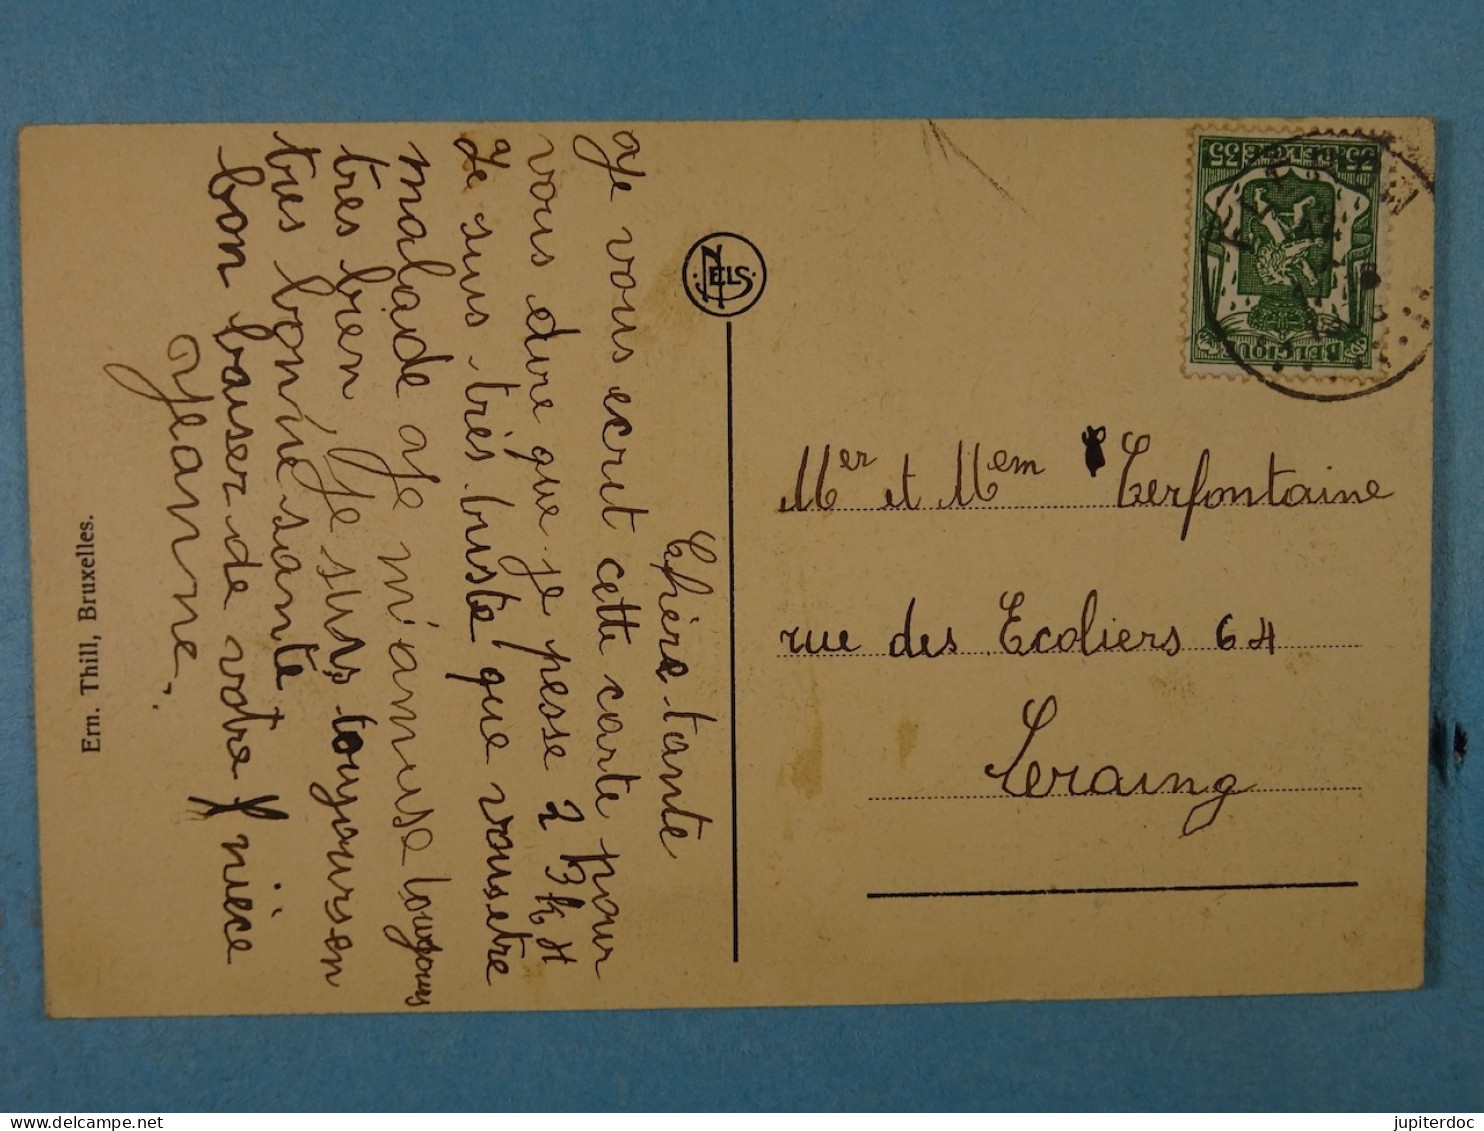 Chère tante
Je vous ecrit cette carte pour
vous dire que je pesse 23k
Je suis très buste que vous etre
malade Je m'amuse toujours
tres bien Je suis toujours en
tres bonne sante
bon baiser de votre nièce
Jeanne.
Ern. Thill, Bruxelles.
NELS
BELGIQUE
35 BELGIE 35
Mer et Mem Terfontaine
rue des Ecoliers 64
Seraing
jupiterdoc